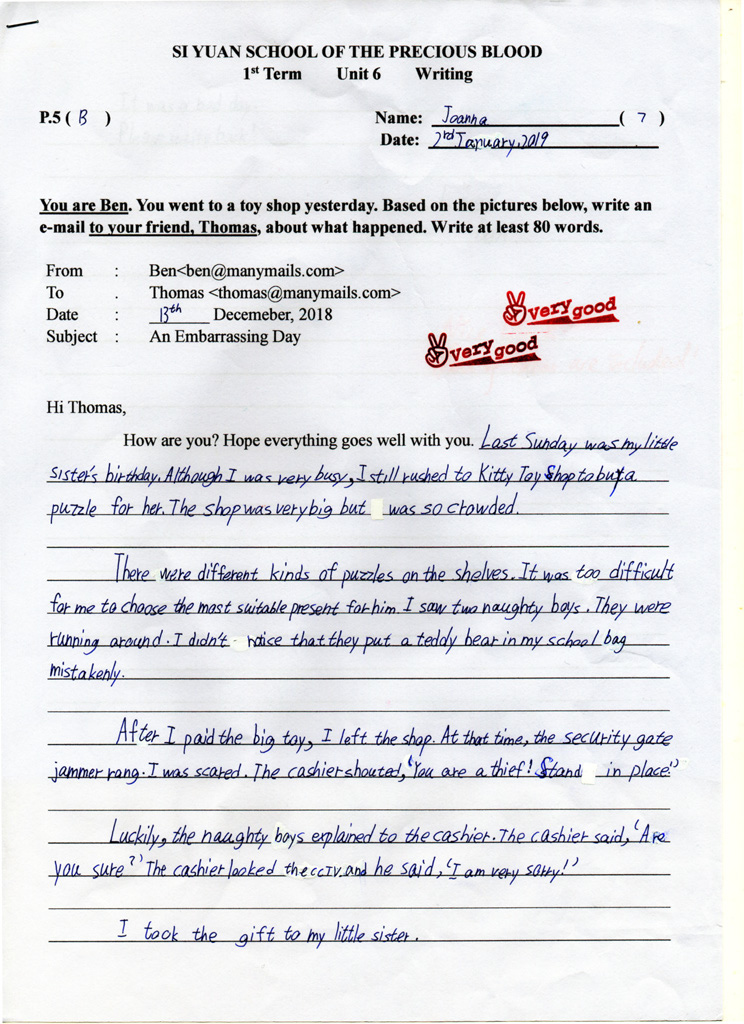 SI YUAN SCHOOL OF THE PRECIOUS BLOOD
1st Term Unit 6 Writing
P.5 ( B ) Name: Joanna ( 7 )
Date: 2rd January, 2019
You are Ben. You went to a toy shop yesterday. Based on the pictures below, write an
e-mail to your friend, Thomas, about what happened. Write at least 80 words.
From : Ben<ben@manymails.com>
To . Thomas <thomas@manymails.com>
Date : 13th Decemeber, 2018
Subject : An Embarrassing Day
very good
very good
Hi Thomas,
How are you? Hope everything goes well with you. Last Sunday was my little
sister's birthday. Although I was very busy, I still rushed to Kitty Toy Shop to buy a
puzzle for her. The shop was very big but was so crowded.
There were different kinds of puzzles on the shelves. It was too difficult
for me to choose the most suitable present for him. I saw two naughty boys. They were
running around. I didn't notice that they put a teddy bear in my school bag
mistakenly.
After I paid the big toy, I left the shop. At that time, the security gate
jammer rang. I was scared. The cashier shouted, 'You are a thief! Stand in place!'
Luckily, the naughty boys explained to the cashier. The cashier said, 'Are
you sure?' The cashier looked the CCTV and he said, 'I am very sorry!'
I took the gift to my little sister.